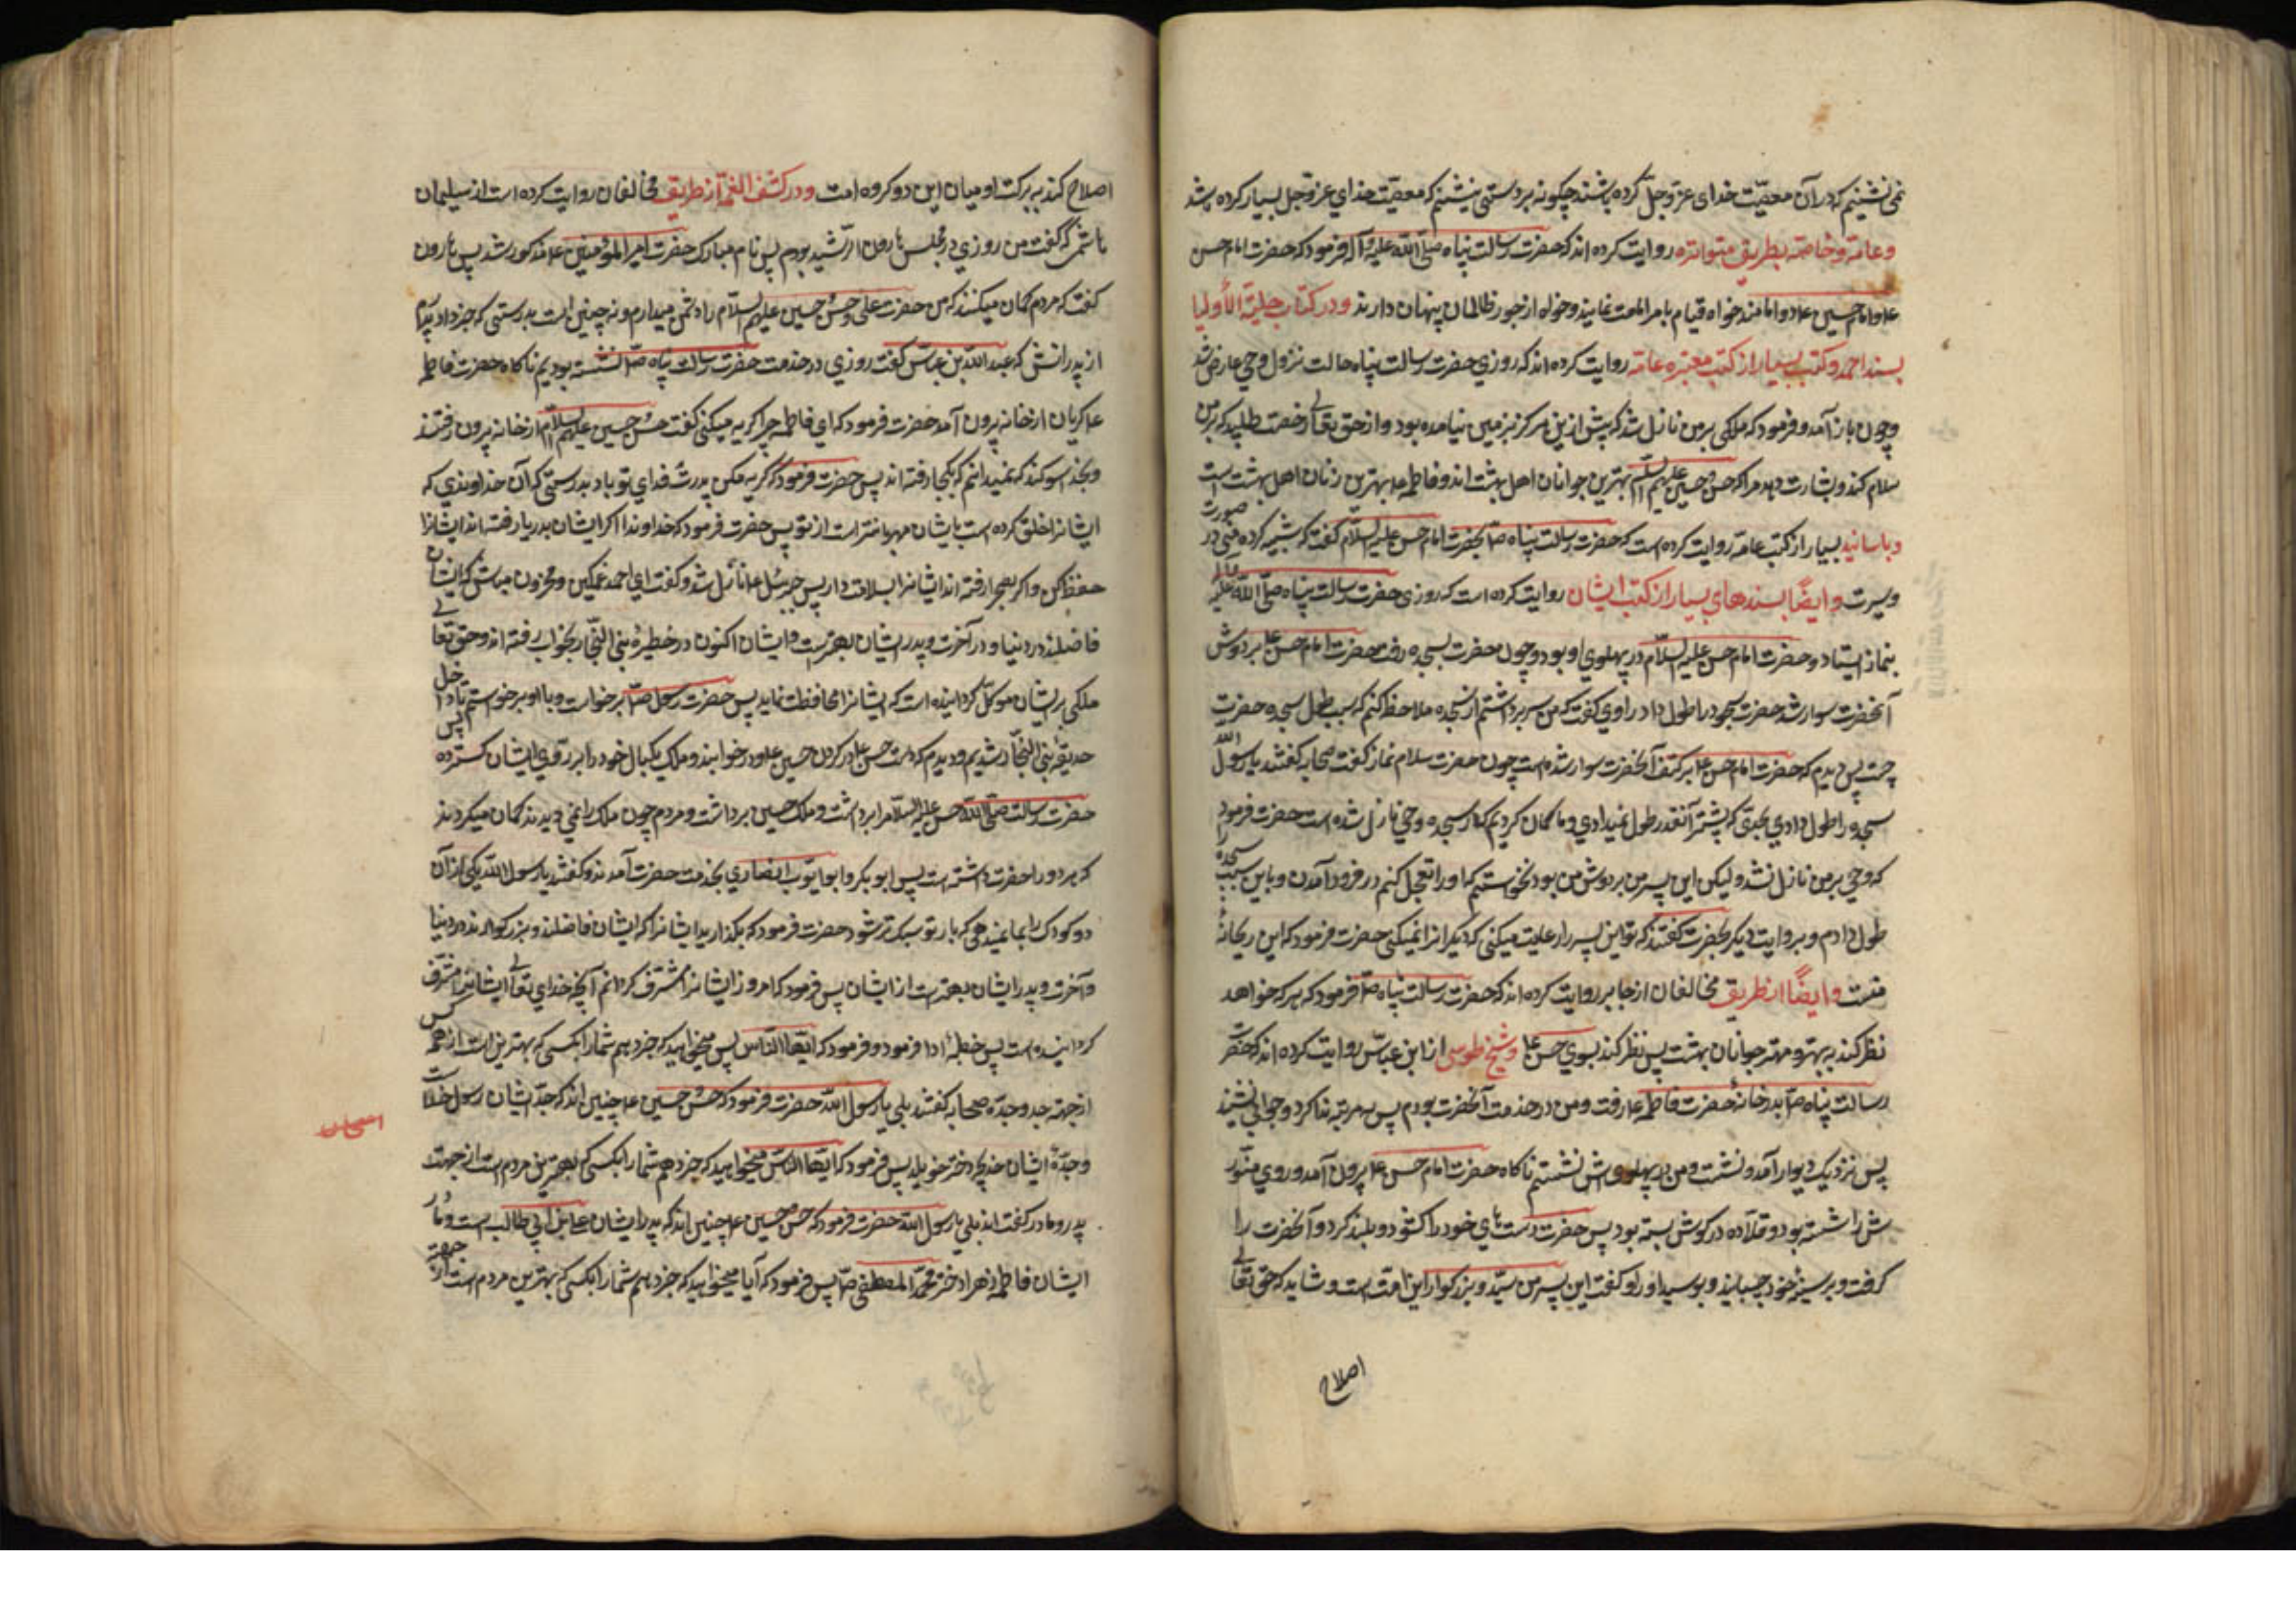 نمی نشینم که در آن معصیّت خدای عزّ و جلّ کرده باشند چگونه بر دستی بنشینم که معصیّت خدای عزّ و جل بسیار کرده باشد
وعامّه وخاصّه بطریق متواتره روایت کرده اند که حضرت رسالت پناه صلّی اللّه علیه وآله فرمود که حضرت امام حسن
عا وامام حسین عا دو امامند خواه قیام بامر امامت نمایند وخواه از جور ظالمان پنهان دارند ودر کتاب حلیة الأولیا
بسند احمد وکتب بسیار از کتب معتبره عامّه روایت کرده اند که روزی حضرت رسالت پناه حالت نزول وحی عارض شد
وچون باز آمد وفرمود که ملکی بر من نازل شد که پیش ازین هرگز بزمین نیامده بود واز حق تعالی رخصت طلبید که بر من
سلام کند وبشارت دهد مرا که حسن وحسین علیهم السلام بهترین جوانان اهل بهشت اند وفاطمه عا بهترین زنان اهل بهشت است
وباسانید بسیار از کتب عامّه روایت کرده است که حضرت رسالت پناه صلا بحضرت امام حسن علیه السلام گفت که شبیه کرده منی در صورت
وسیرت وایضًا بسندهای بسیار از کتب ایشان روایت کرده است که روزی حضرت رسالت پناه صلّی اللّه علیه وآله
بنماز ایستاد وحضرت امام حسن علیه السلام در پهلوی او بود وچون حضرت بسجده رفت حضرت امام حسن عا بر دوش
آنحضرت سوار شد حضرت سجود را طول داد راوی گفت که من سر برداشتم از سجده ملاحظه کنم که سبب طول سجده حضرت
چیست پس دیدم که حضرت امام حسن عا بر کتف آنحضرت سوار شده است چون حضرت سلام نماز گفت صحابه گفتند یا رسول اللّه
سجده را طول دادی بحدّی که پیشتر آنقدر طول نمیدادی وما گمان کردیم که در سجده وحی نازل شده است حضرت فرمود
که وحی بر من نازل نشد ولیکن این پسر من بر دوش من بود نخواستم که او را تعجیل کنم در فرود آمدن وباین سبب سجده را
طول دادم وبروایت دیگر بحضرت گفتند که تو این پسر را رعایت میکنی که دیگرانرا نمیکنی حضرت فرمود که این ریحانهٔ
منست وایضًا از طریق مخالفان از جابر روایت کرده اند که حضرت رسالت پناه صلا فرمود که هر که خواهد
نظر کند به بهتر ومهتر جوانان بهشت پس نظر کند بسوی حسن عا وشیخ طوسی از ابن عبّاس روایت کرده اند که حضرت
رسالت پناه صلا بدر خانهٔ حضرت فاطمه عا رفت ومن در خدمت آنحضرت بودم پس سه مرتبه ندا کرد وجوابی نشنید
پس نزدیک دیوار آمد ونشست ومن در پهلویش نشستم ناگاه حضرت امام حسن عا بیرون آمد وروی منوّر
ش را شسته بود وقلّاده در گوش بسته بود پس حضرت دستهای خود را گشود وبلند کرد وآنحضرت را
گرفت وبر سینهٔ خود چسبانید وبوسید او را وگفت این پسر من سیّد وبزرگوار این امّت است وشاید که حق تعالی
اصلاح
اصلاح کند به برکت او میان این دو گروه امت ودر کشف الغمّه از طریق مخالفان روایت کرده است از سلیمان
هاشمی که گفت من روزی در مجلس هارون الرّشید بودم پس نام مبارک حضرت امیر المؤمنین عا مذکور شد پس هارون
گفت که مردم گمان میکنند که من حضرت علی وحسن وحسین علیهم السلام را دشمن میدارم ونه چنین است بدرستی که خبر داد پدرم
از پدرانش که عبد اللّه بن عبّاس گفت روزی در خدمت حضرت رسالت پناه صلا نشسته بودیم ناگاه حضرت فاطمه
عا گریان از خانه بیرون آمد حضرت فرمود که ای فاطمه چرا گریه میکنی گفت حسن وحسین علیهم السلام از خانه بیرون رفتند
وبخدا سوگند که نمیدانم که بکجا رفته اند پس حضرت فرمود که گریه مکن پدرت فدای تو باد بدرستی که آن خداوندی که
ایشانرا خلق کرده است بایشان مهربانتر است از تو پس حضرت فرمود که خداوندا اگر ایشان بدریا رفته اند ایشانرا
حفظ کن واگر بصحرا رفته اند ایشانرا بسلامت دار پس جبرئیل عا نازل شد وگفت ای احمد غمگین ومحزون مباش که ایشان
فاضلند در دنیا ودر آخرت وپدر ایشان بهترست وایشان اکنون در خطیرهٔ بنی النجّار بخواب رفته اند وحق تعالی
ملکی بر ایشان موکّل گردانیده است که ایشانرا محافظت نماید پس حضرت رسول صلا برخواست وبا او برخواستیم تا داخل
حدیقهٔ بنی النجّار شدیم ودیدم که دست حسن عا در گردن حسین عا ودر خوابند وملک یکبال خود را بر روی ایشان گسترده پس
حضرت رسالت صلّی اللّه حسن علیه السلام را برداشت وملک حسین برداشت ومردم چون ملک را نمی دیدند گمان میکردند
که هر دو را حضرت داشته است پس ابو بکر وابو ایّوب انصاری بخدمت حضرت آمدند وگفتند یا رسول اللّه یکی از آن
دو کودک را بما نمیدهی که بار تو سبک تر شود حضرت فرمود که بگذارید ایشانرا که ایشان فاضلند وبزرگوارند در دنیا
وآخرت وپدر ایشان بهترست از ایشان پس فرمود که امروز ایشانرا مشرّف گردانم آنچه خدای تعالی ایشانرا مشرّف
گردانیده است پس خطبهٔ ادا فرمود وفرمود که ایّها النّاس پس میخواهید که خبر دهم شما را بکسی که بهترین است از همه کس
از جهة جد وجدّه صحابه گفتند بلی یا رسول اللّه حضرت فرمود که حسن وحسین عا چنین اند که جدّ ایشان رسول خداست
وجدّهٔ ایشان خدیجه دختر خویلد پس فرمود که ایّها النّاس میخواهید که خبر دهم شما را بکسی که بهترین مردم است از جهت
پدر ومادر گفتند بلی یا رسول اللّه حضرت فرمود که حسن وحسین عا چنین اند که پدر ایشان علی بن ابی طالب است ومادر
ایشان فاطمه زهرا دختر محمّد المصطفی صلا پس فرمود که آیا میخواهید که خبر دهم شما را بکسی که بهترین مردم است از جهة